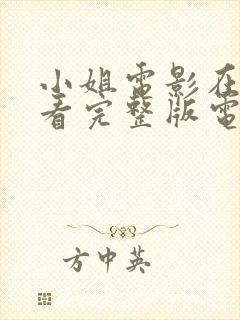 小姐電影在
看完整版電
方中英